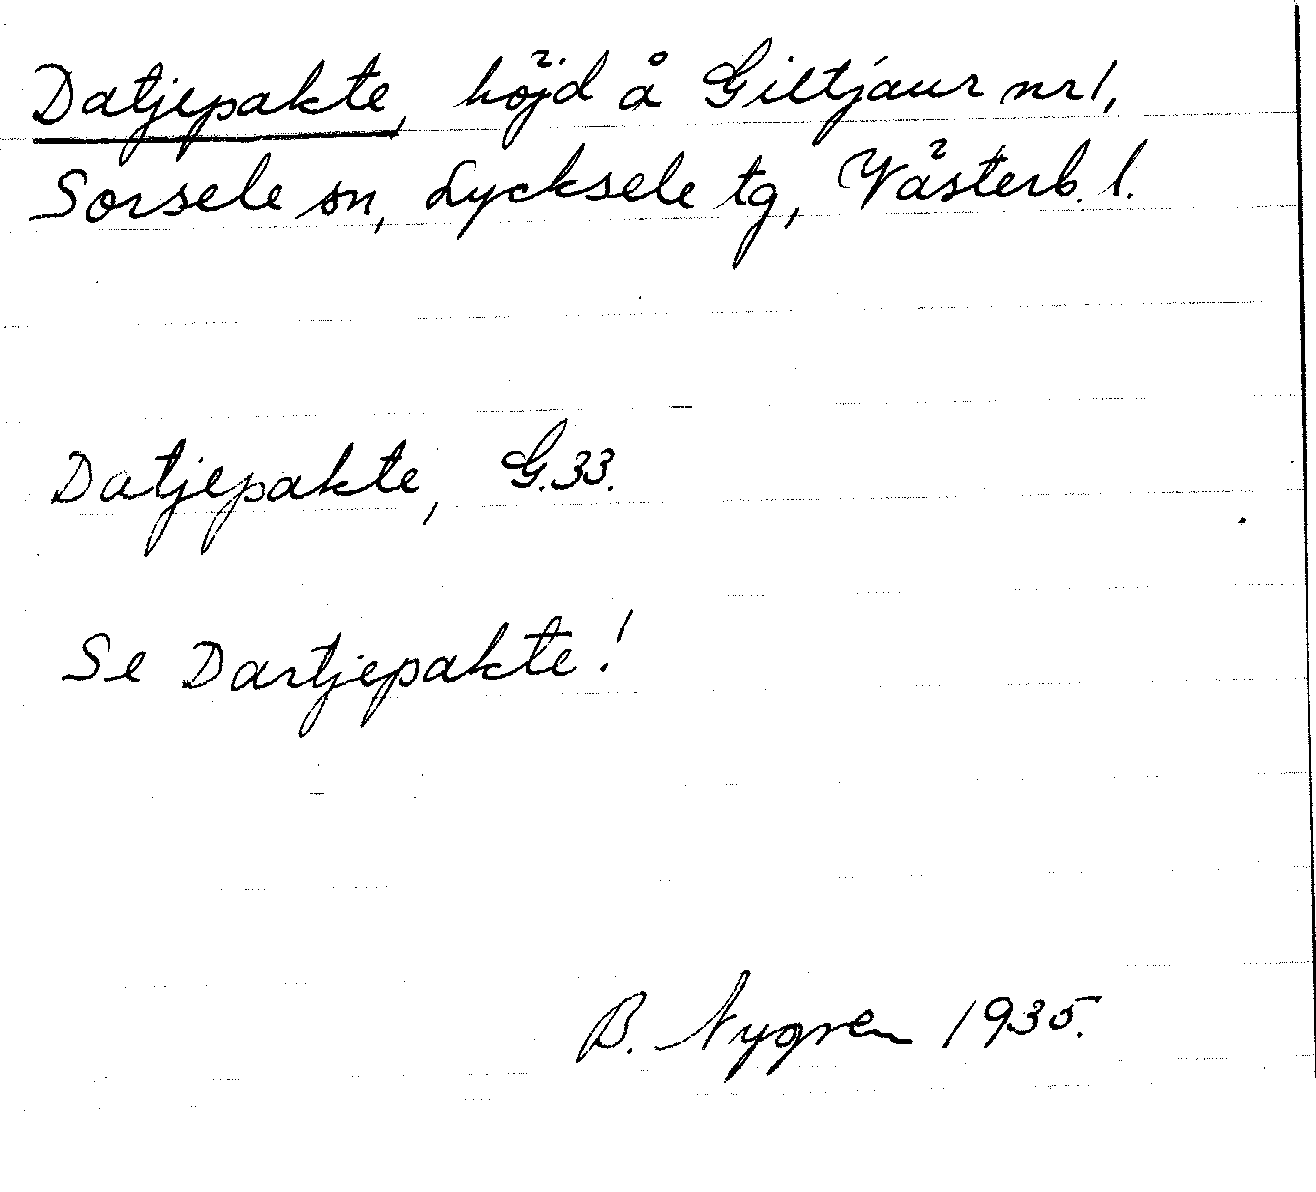 Datjepakte, höjd å Giltjaur nr 1,
Sorsele sn, Lycksele tg, Västerb. l.
Datjepakte, G.33.
Se Dartjepakte!
B. Nygren 1935.